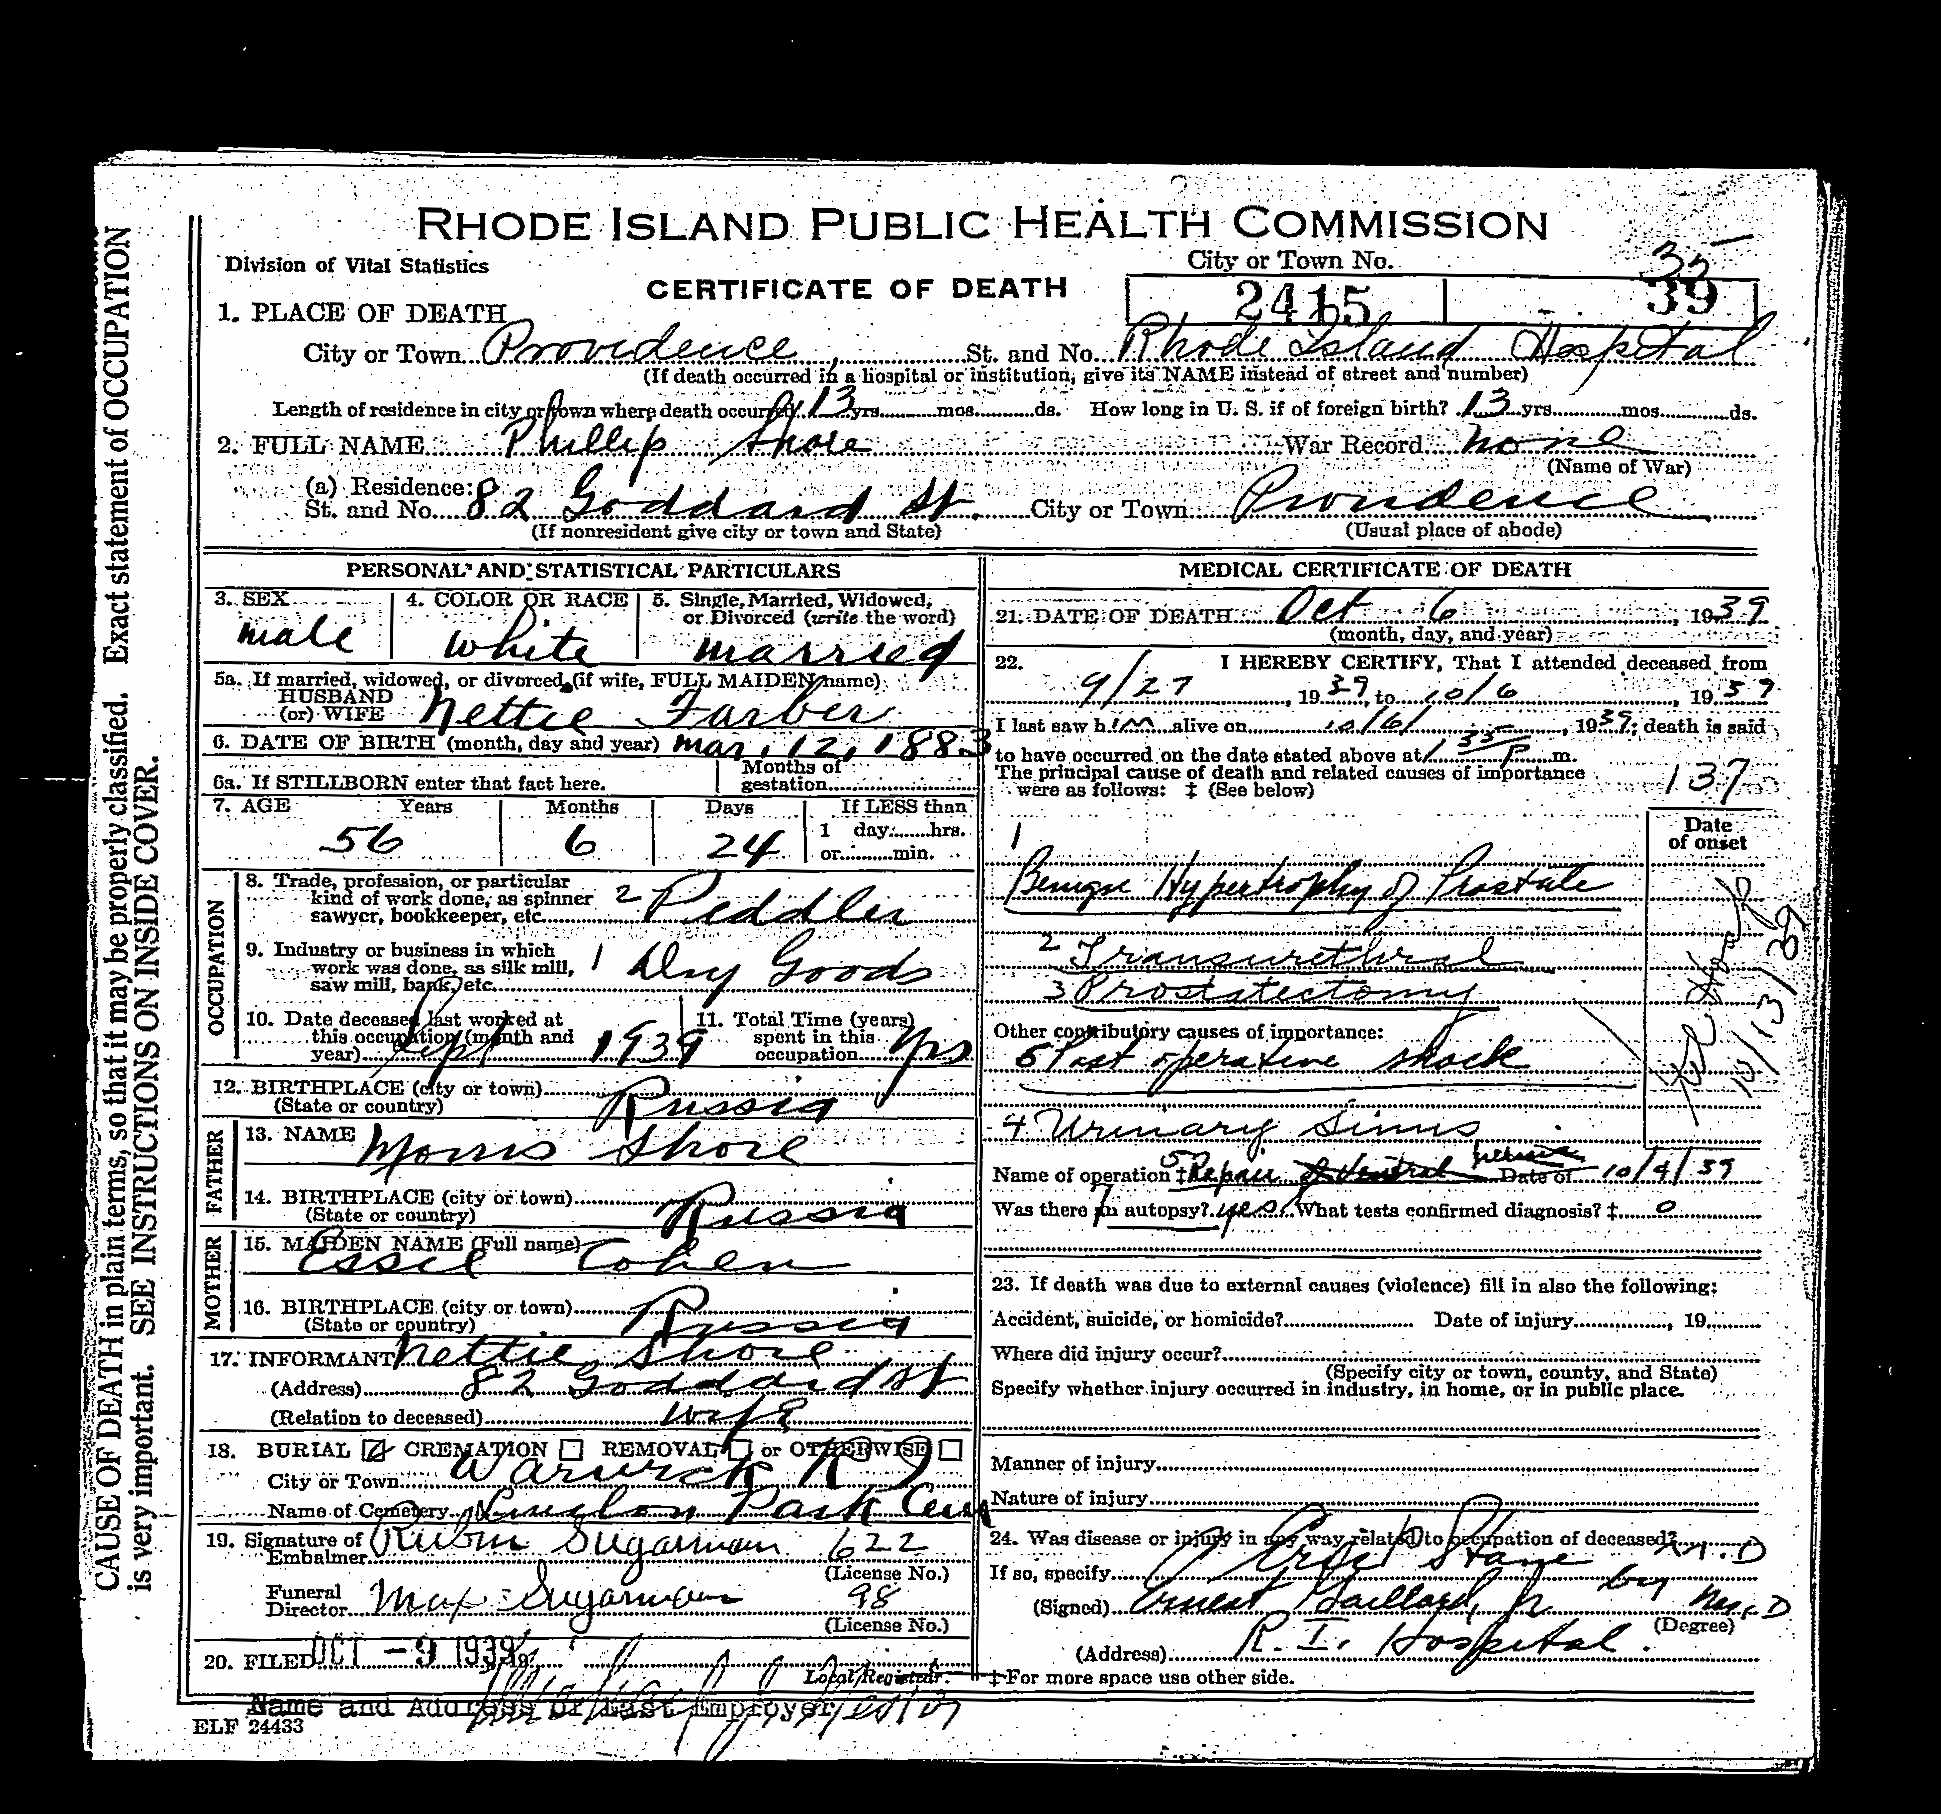 RHODE ISLAND PUBLIC HEALTH COMMISSION
Division of Vital Statistics
City or Town No.
35
CERTIFICATE OF DEATH
2415 39
1. PLACE OF DEATH
City or Town Providence St. and No. Rhode Island Hospital
(If death occurred in a hospital or institution, give its NAME instead of street and number)
Length of residence in city or town where death occurred 13 yrs. mos. ds. How long in U. S. if of foreign birth? 13 yrs. mos. ds.
2. FULL NAME Phillip Shore War Record none
(Name of War)
(a) Residence:
St. and No. 82 Goddard St. City or Town Providence
(If nonresident give city or town and State) (Usual place of abode)
PERSONAL AND STATISTICAL PARTICULARS
3. SEX 4. COLOR OR RACE 5. Single, Married, Widowed,
or Divorced (write the word)
male white married
5a. If married, widowed, or divorced (if wife, FULL MAIDEN name)
HUSBAND
(or) WIFE Nettie Farber
6. DATE OF BIRTH (month, day and year) Mar. 12, 1883
6a. If STILLBORN enter that fact here. Months of
gestation
7. AGE Years Months Days If LESS than
56 6 24 1 day hrs.
or min.
OCCUPATION
8. Trade, profession, or particular
kind of work done, as spinner
sawyer, bookkeeper, etc. 2 Peddler
9. Industry or business in which
work was done, as silk mill,
saw mill, bank, etc. 1 Dry Goods
10. Date deceased last worked at
this occupation (month and
year) Sept 1939
11. Total Time (years)
spent in this
occupation yrs
12. BIRTHPLACE (city or town)
(State or country) Russia
FATHER
13. NAME Morris Shore
14. BIRTHPLACE (city or town)
(State or country) Russia
MOTHER
15. MAIDEN NAME (Full name)
Essie Cohen
16. BIRTHPLACE (city or town)
(State or country) Russia
17. INFORMANT Nettie Shore
(Address) 82 Goddard St
(Relation to deceased) Wife
18. BURIAL CREMATION REMOVAL or OTHERWISE
City or Town Warwick R I
Name of Cemetery Lincoln Park Cem
19. Signature of
Embalmer Rubin Sugarman 622
(License No.)
Funeral
Director Max Sugarman 98
(License No.)
20. FILED OCT -9 1939
Local Registrar.
Name and Address of Last Employer
ELF 24433
MEDICAL CERTIFICATE OF DEATH
21. DATE OF DEATH Oct 6, 1939
(month, day, and year)
22. I HEREBY CERTIFY, That I attended deceased from
9/27, 1939, to 10/6, 1939
I last saw him alive on 10/6/, 1939; death is said
to have occurred on the date stated above at 1 35 P m.
The principal cause of death and related causes of importance
were as follows: ‡ (See below)
137
Date
of onset
1
Benign Hypertrophy of Prostate
2 Transurethral
3 Prostatectomy
10/13/39
Other contributory causes of importance:
5 Post operative shock
4 Urinary Sinus
Name of operation ‡ Repair of Ventral hernia Date of 10/4/39
Was there an autopsy? yes What tests confirmed diagnosis? ‡ 0
23. If death was due to external causes (violence) fill in also the following:
Accident, suicide, or homicide? Date of injury, 19
Where did injury occur?
(Specify city or town, county, and State)
Specify whether injury occurred in industry, in home, or in public place.
Manner of injury
Nature of injury
24. Was disease or injury in any way related to occupation of deceased?
If so, specify M.D
by
(Signed) Ernest Gaillard, Jr M.D
(Degree)
(Address) R. I. Hospital.
‡ For more space use other side.
CAUSE OF DEATH in plain terms, so that it may be properly classified. Exact statement of OCCUPATION
is very important. SEE INSTRUCTIONS ON INSIDE COVER.